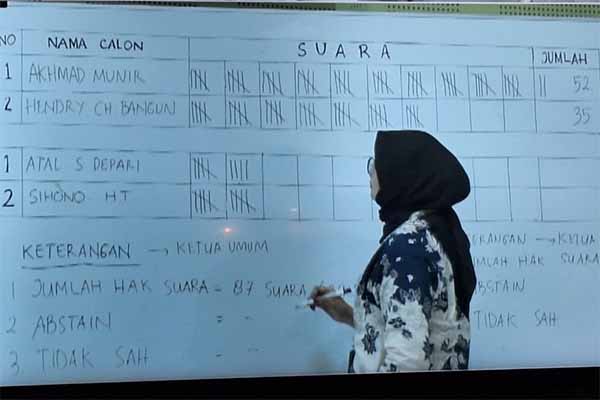 NO NAMA CALON SUARA JUMLAH
1 AKHMAD MUNIR 52
2 HENDRY CH BANGUN 35
1 ATAL S DEPARI
2 SIHONO HT
KETERANGAN → KETUA UMUM
→ KETUA
1 JUMLAH HAK SUARA = 87 SUARA
HAK SUARA
2 ABSTAIN = -
ABSTAIN
3 TIDAK SAH = -
TIDAK SAH